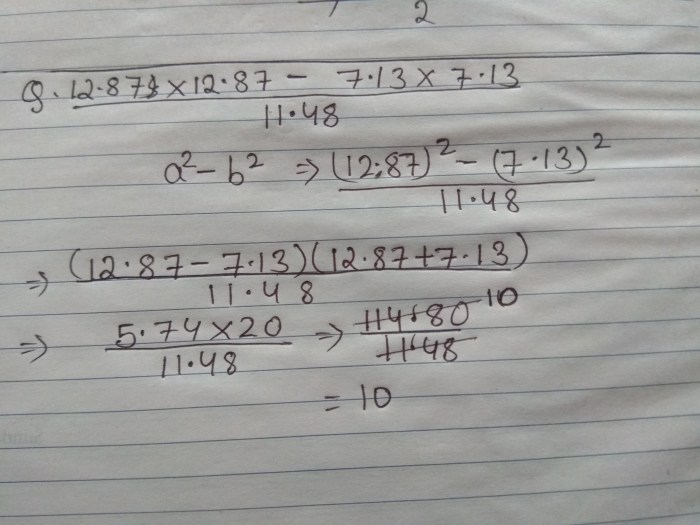 2
9. 12.87 × 12.87 - 7.13 × 7.13
11.48
a² - b² ⇒ (12.87)² - (7.13)²
11.48
⇒ (12.87 - 7.13)(12.87 + 7.13)
11.48
⇒ 5.74 × 20 ⇒ 114.80 10
11.48 11.48
= 10